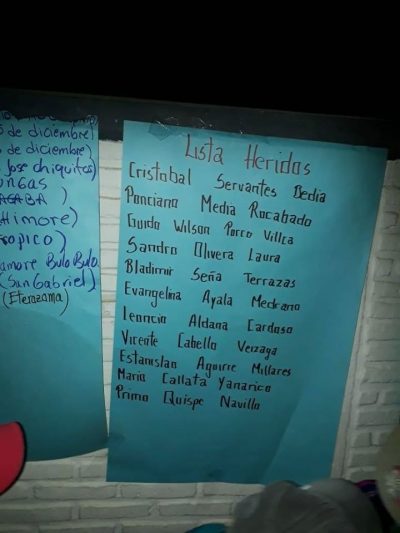 de diciembre)
de diciembre)
Jose chiquitos)
UNGAS
)
Himore)
ropico)
amore Bulo Bulo
(San Gabriel)
(Eterazama)
Lista Heridos
Cristobal Servantes Dedia
Ponciano Media Rocabado
Guido Wilson Porco Villca
Sandro Olivera Laura
Bladimir Seña Terrazas
Evangelina Ayala Medrano
Leoncio Aldana Cardoso
Vicente Cabello Veizaga
Estanislao Aguirre Millares
Mario Callata Yanarico
Primo Quispe Navilla